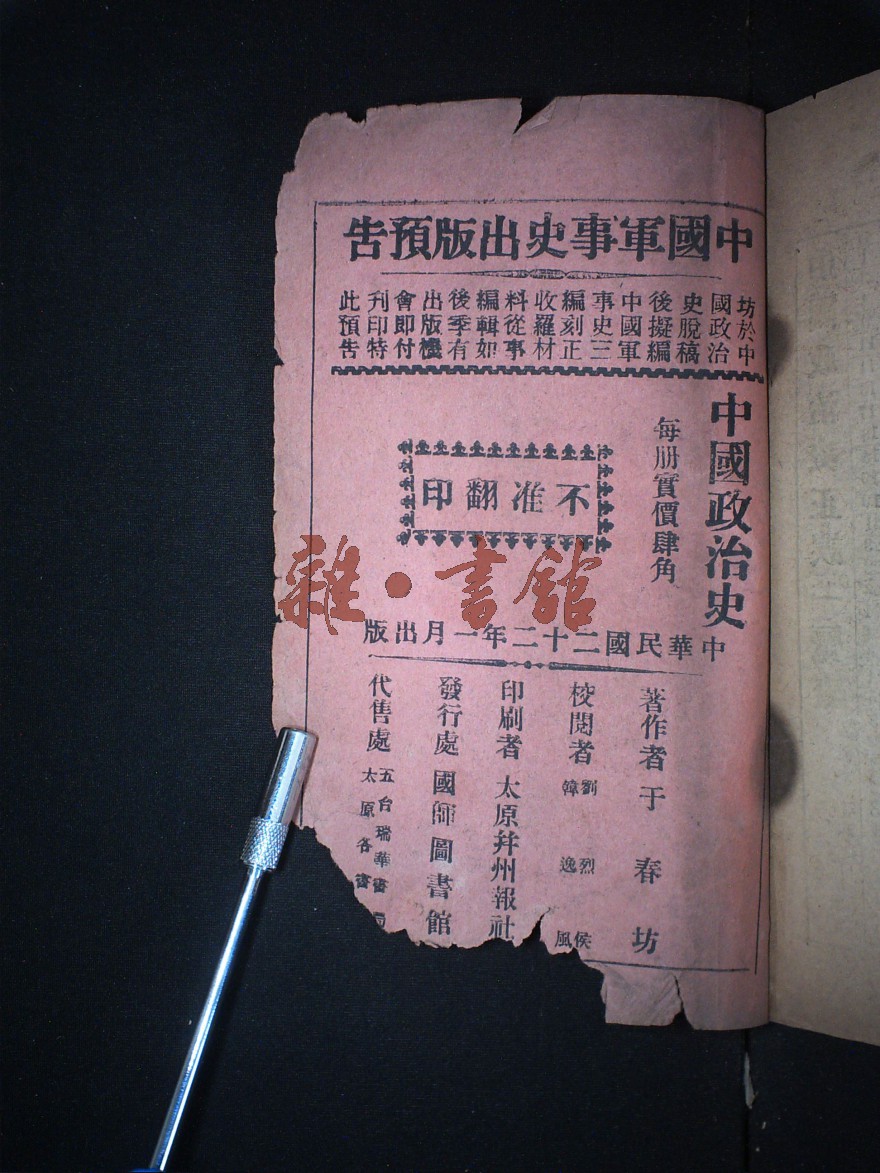 中國軍事史出版預告
坊於中
國政治
史脫稿
後擬編
中國軍
事史三
編刻正
收羅材
料從事
編輯如
後季有
出版機
會即付
刊印特
此預告
中國政治史
每册實價肆角
不准翻印
中華民國二十二年一月出版
著作者 于春坊
校閱者 劉烈侯
韓逸風
印刷者 太原并州報社
發行處 國師圖書館
代售處 五台瑞華書
太原各書
雜·書館